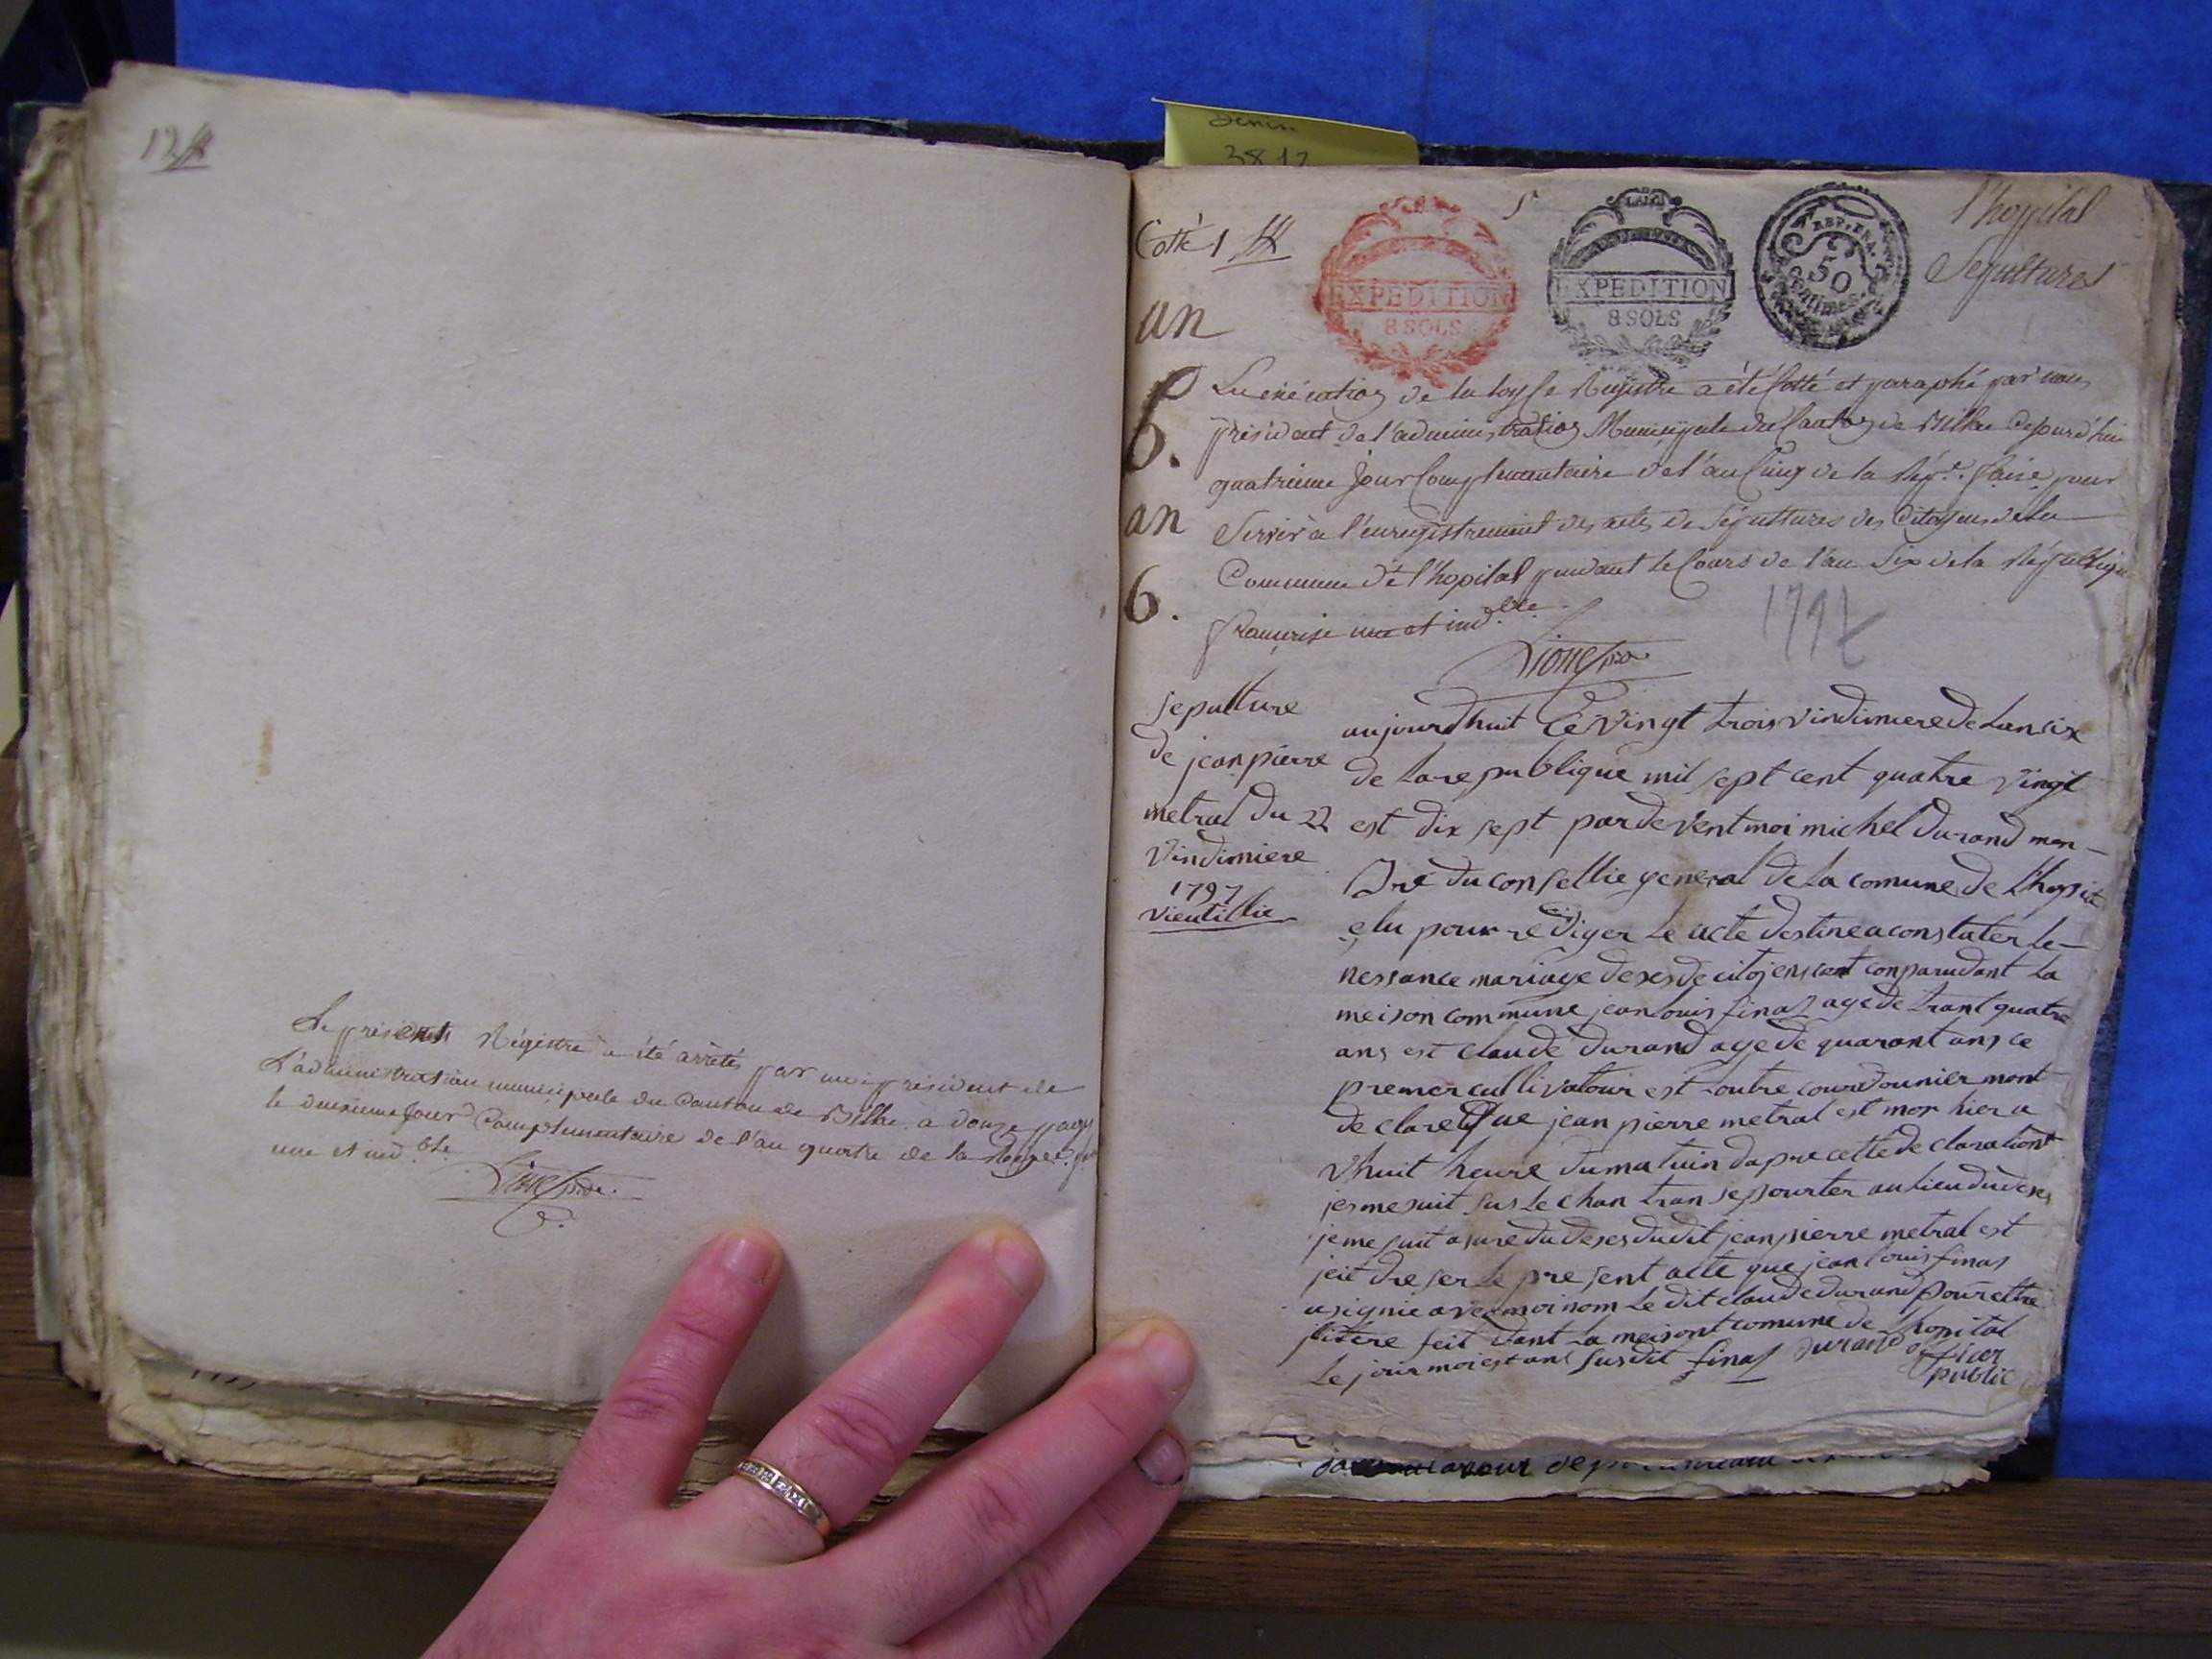 12
Le présent Régistre a été arrêté par moi président de
L'administration municipale du Canton de Bilhe a douze pages
le deuxieme Jour Complementaire de l'an quatre de la
une et ind.ble
Denin
3812
Cotté 1
EXPEDITION
8 SOLS
EXPEDITION
8 SOLS
REP. FRA.
50
Centimes
l'hopital
Sepultures
an
6.
an
6.
En exécution de la loy Ce Registre a été Cotté et paraphé par nous
président de l'administration Municipale du Canton de Bilhe Cejourd'hui
quatrieme Jour Complementaire de l'an Cinq de la Rép.e fçaise pour
Servir a l'enregistrement des actes de Sépultures des Citoyens de la
Commune de l'hopital pendant le Cours de l'an Six de la Républiqu
française une et ind.ble
1797
sepulture
de jean pierre
metral du 22
vindimiere
1797
vieutillie
aujourdhuit Ce vingt trois vindimiere de Lan six
de La republique mil sept cent quatre vingt
est dix sept pardevent moi michel durand men-
bre du consellie general de La comune de L'hopit
elu pour rediger Le acte destine a constater le-
nessance mariage deses de citojens sont conparu dant La
meison commune jean Louis finas age de trant quatre
ans est claude durand age de quarant ans ce
premer cultivatour est Loutre courdounier mont
declare que jean pierre metral est mor hier a
vhuit heure du matuin dapre cette declarationt
jesmesuit sus Le chan transepourter au Lieu du deses
jemesuit asure du deses dudit jean pierre metral est
jeie dreser Le present acte que jean Louis finas
a signie avec moi nom Le dit claude durand pour ettre
litere feit dant La meisont comune de Lhopital
Le jour moi est ans susdit finas durand officier
public